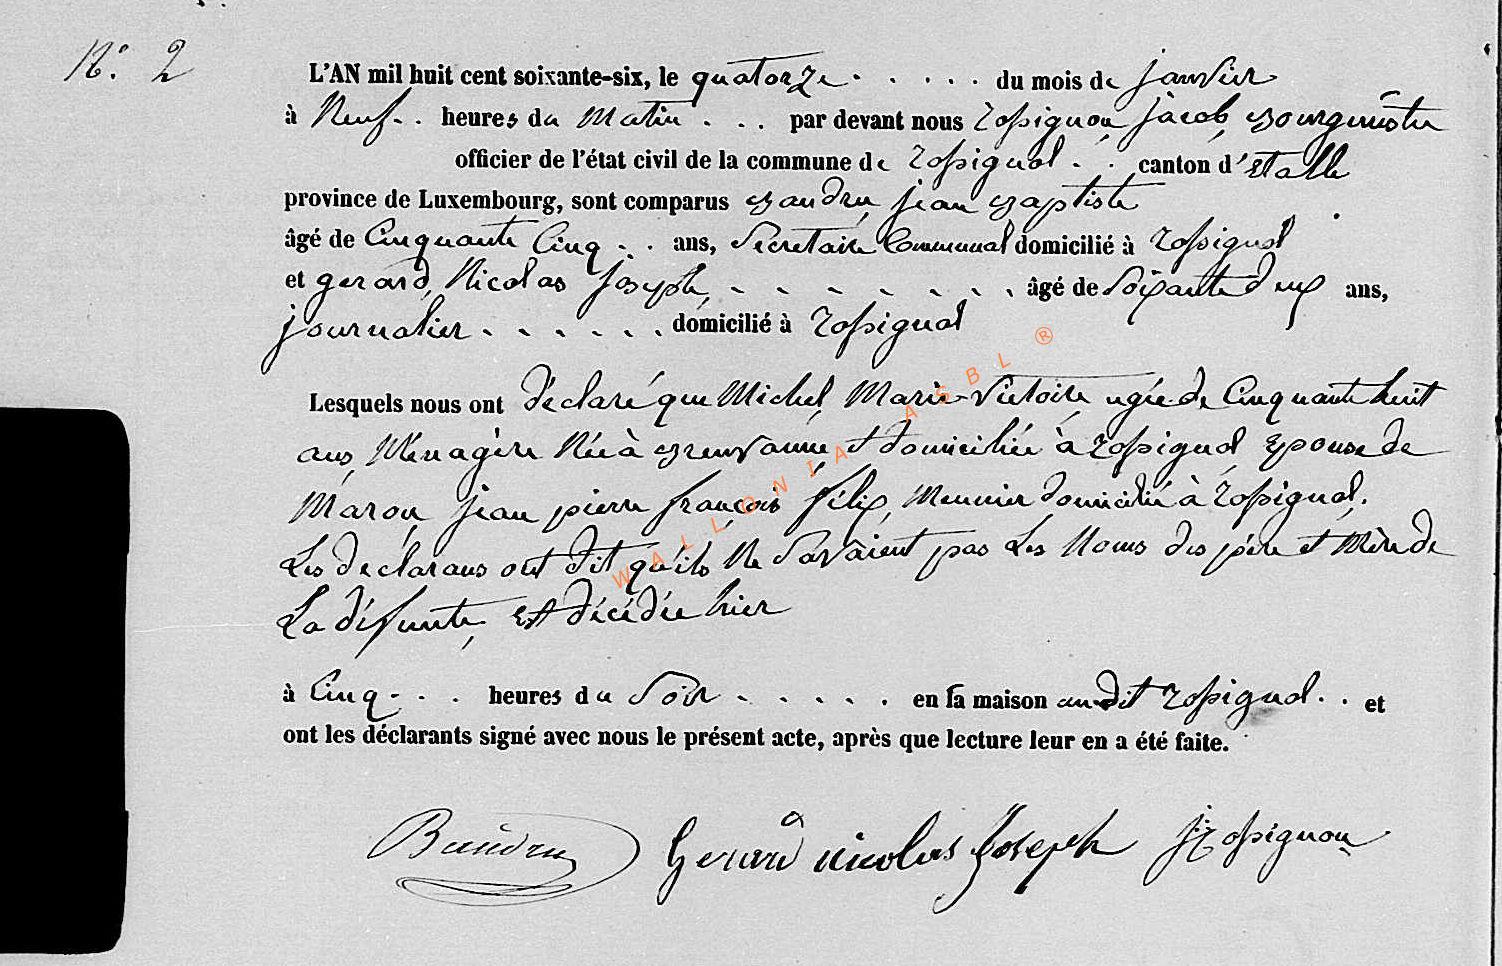 N.° 2
L'AN mil huit cent soixante-six, le quatorze . . . . . du mois de janvier
à Neuf . . heures du Matin . . . par devant nous Rossignon Jacob, Bourgmestre
officier de l'état civil de la commune de Rossignol . . canton d'Etalle
province de Luxembourg, sont comparus Baudru, jean Baptiste
âgé de Cinquante Cinq . . ans, Secretaire Communal domicilié à Rossignol
et gerard, Nicolas Joseph, - - - - - - - . âgé de Soixante deux ans,
journalier . . . . . . . domicilié à Rossignol
Lesquels nous ont déclaré que Michel, Marie-Victoire agée de Cinquante huit
ans, Ménagère Née à Brenvanne, et domiciliée à Rossignol Epouse de
Maron, jean pierre françois félix, Meunier domicilié à Rossignol.
Les déclarans ont dit qu'ils Ne Savaient pas Les Noms des père et Mère de
La défunte, Est décédée hier
à Cinq . . . heures du Soir - . . . . . en sa maison audit Rossignol . . et
ont les déclarants signé avec nous le présent acte, après que lecture leur en a été faite.
Baudru Gerard nicolas Joseph J Rossignon
WALLONIA ASBL ®